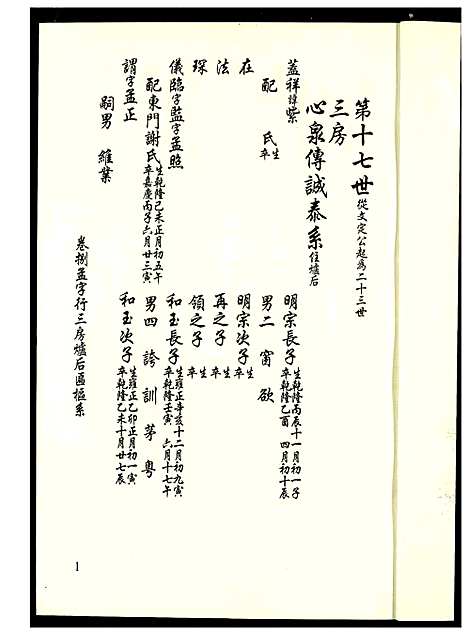 第十七世 從文定公起爲二十三世
三房
心泉傳誠泰系 住爐后
蓋祥 諱紫 明宗長子 生乾隆丙辰十一月初一子 卒乾隆乙酉四月初十辰
配 氏 生 卒 男二 甯 欲
在 明宗次子 生 卒
法 再之子 生 卒
琛 領之子 生 卒
儀臨 字監 字孟照 和玉長子 生雍正辛亥十二月初九寅 卒乾隆壬寅六月十七午
配東門謝氏 生乾隆己未正月初五午 卒嘉慶丙子六月廿三寅 男四 誇 訓 茅 粵
謂 字孟正 和玉次子 生雍正乙卯正月初一寅 卒乾隆乙未十月廿七辰
嗣男 維業
卷捌孟字行三房爐后區樞系
1